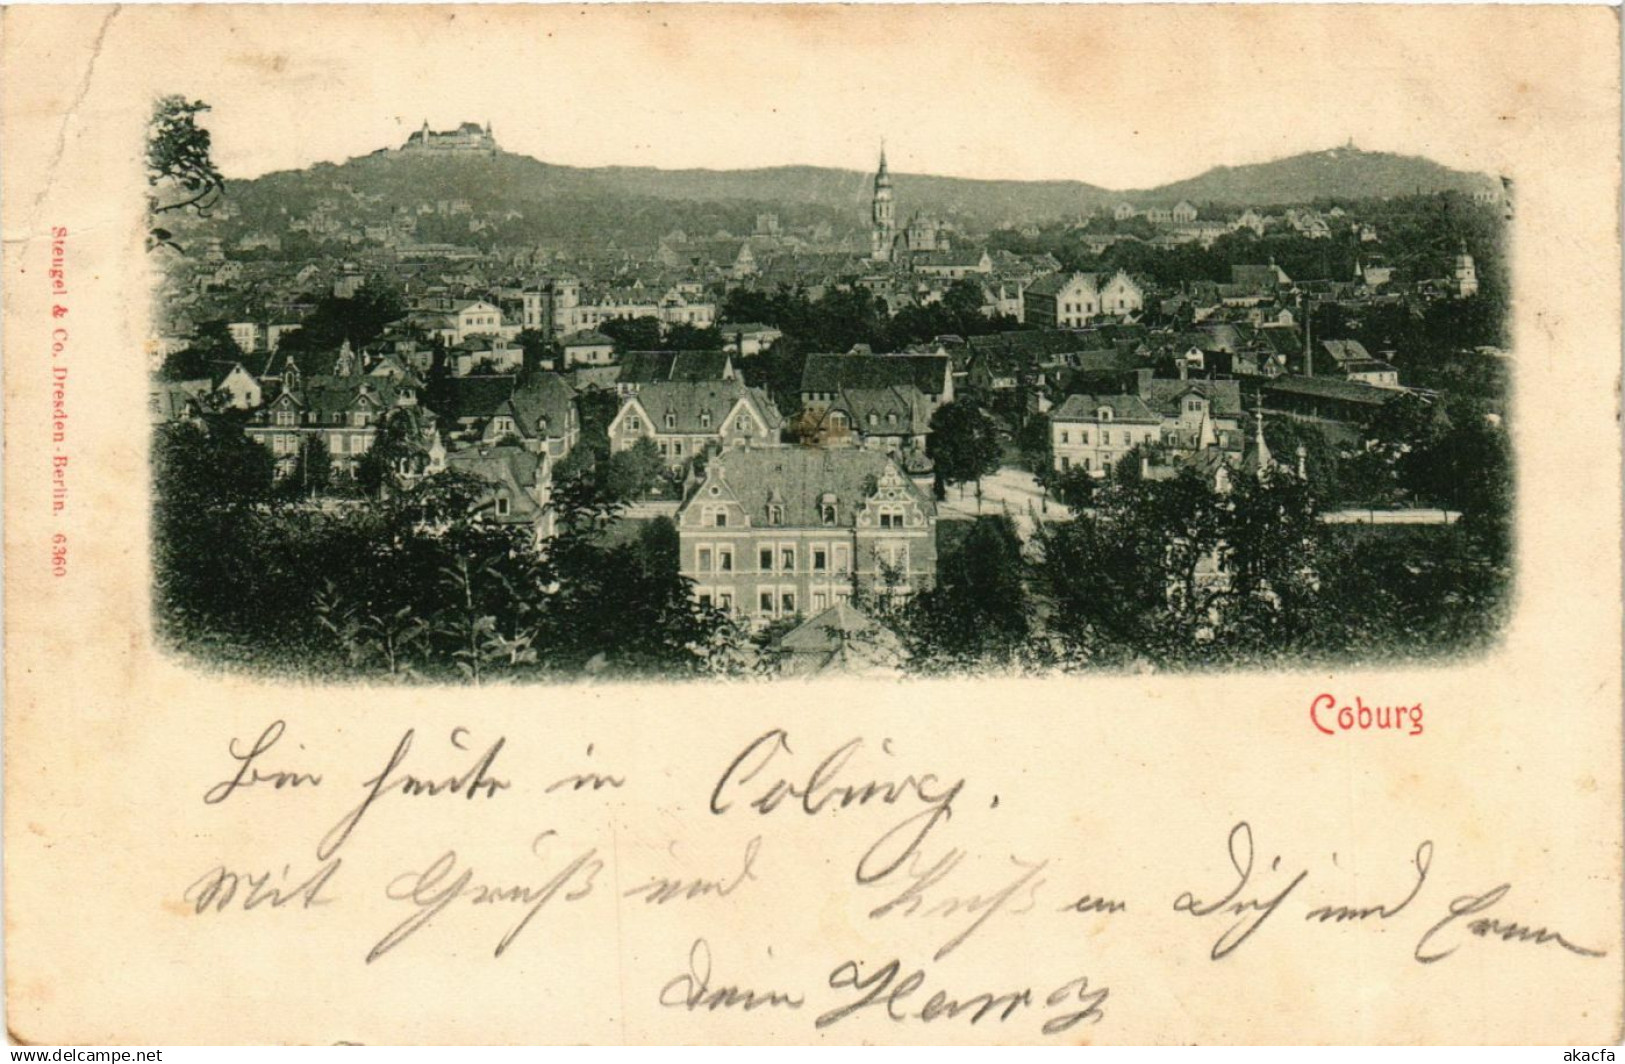 Stengel & Co. Dresden-Berlin. 6360
Coburg
Bin heute in Coburg.
Mit Gruß und Kuß an Dich und
Dein Harry
akacfa